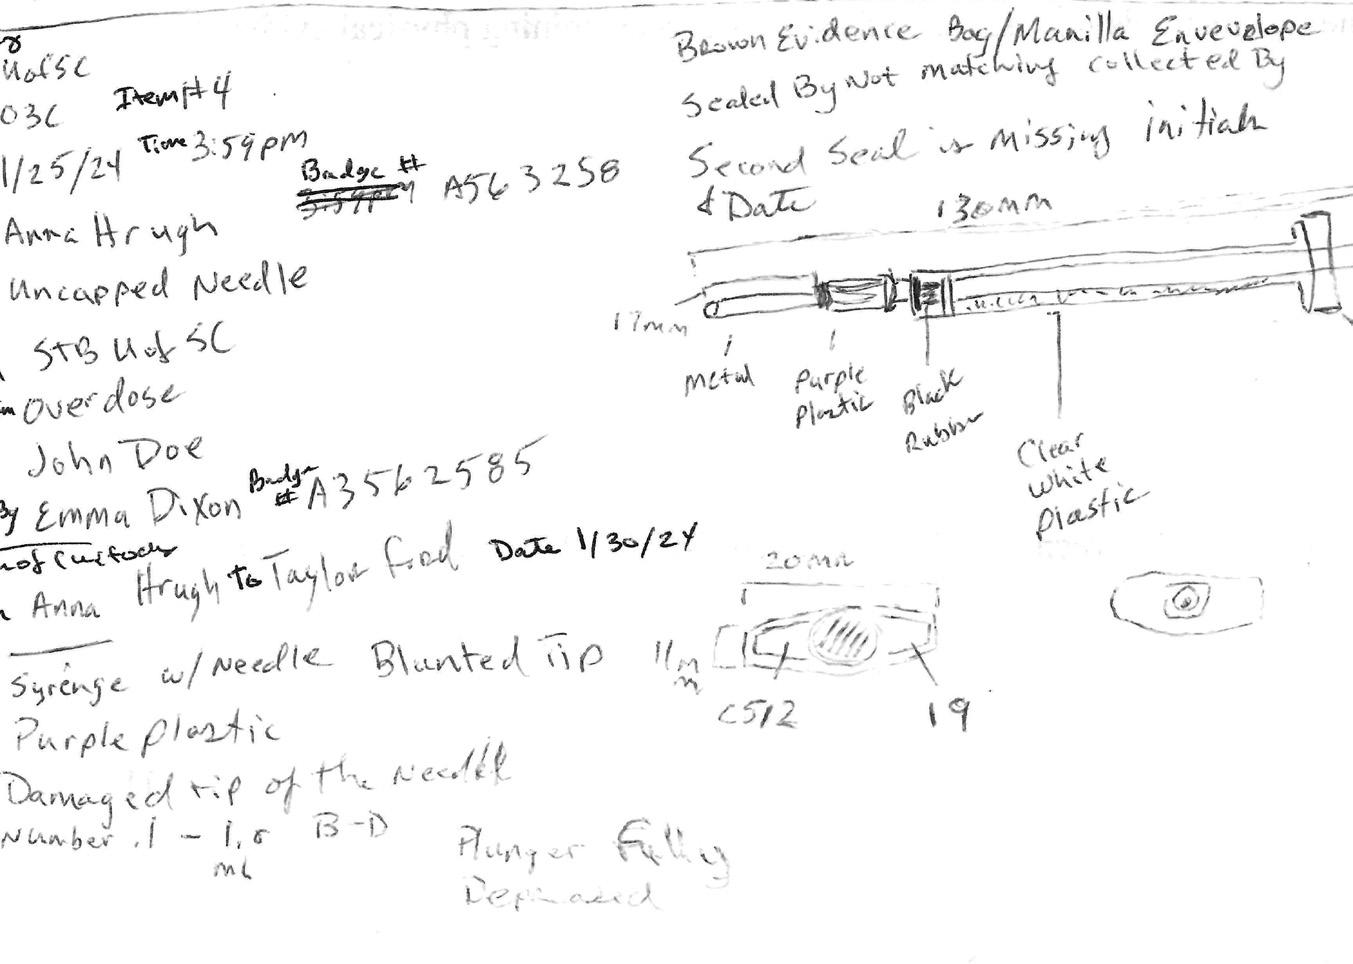 UofSC
03C Item# 4
1/25/24 Time 3:59pm
Badge #
A563258
Anna Hrugh
Uncapped Needle
STB U of SC
Overdose
John Doe
By Emma Dixon Badge # A3562585
of Custody
Anna Hrugh to Taylor Ford Date 1/30/24
Syrenge w/ Needle Blunted Tip
Purple plastic
Damaged tip of the Needle
Number .1 - 1.0 B-D
mL
Plunger Fully
Brown Evidence Bag/Manilla Envevelope
Sealed By Not matching collected By
Second Seal is missing initials
& Date
130mm
17mm
Metal
Purple
Plastic
Black
Rubber
Clear
White
plastic
20mm
11mm
C512
19